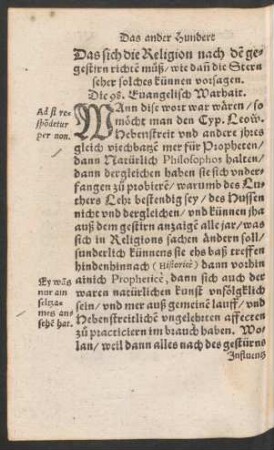 Das ander Hundert
Das sich die Religion nach dē ge-
gestirn richtē müß/ wie dañ die Stern
seher solches künnen vorsagen.
Die 98. Euangelisch Warhait.
Ad si re-
spōdetur
per non.
WAnn dise wort war wären/ so
möcht man den Cyp. Leow.
Hebenstreit vnd andere jhres
gleich viechbatzē mer für Propheten/
dann Natürlich Philosophos halten/
dann dergleichen haben sie sich vnder-
fangen zu probirē/ warumb des Lu-
thers Lehr bestendig sey/ des Hussen
nicht vnd dergleichen/ vnd künnen jha
auß dem gestirn anzaigē alle jar/ was
sich in Religions sachen ändern soll/
sunderlich künnens sie ehs baß treffen
hindenhinnach (Historicè) dann vorhin
Ey wās
nur ain
seltza-
mes an
sehē hat.
ainich Propheticè, dann sich auch der
waren natürlichen kunst vnsölglich
sein/ vnd mer auß gemeinē lauff/ vnd
Hebenstreitlichē vngelehrten affectē
zu practiciern im brauch haben. Wo-
lan/ weil dann alles nach des gestürns
Influentz